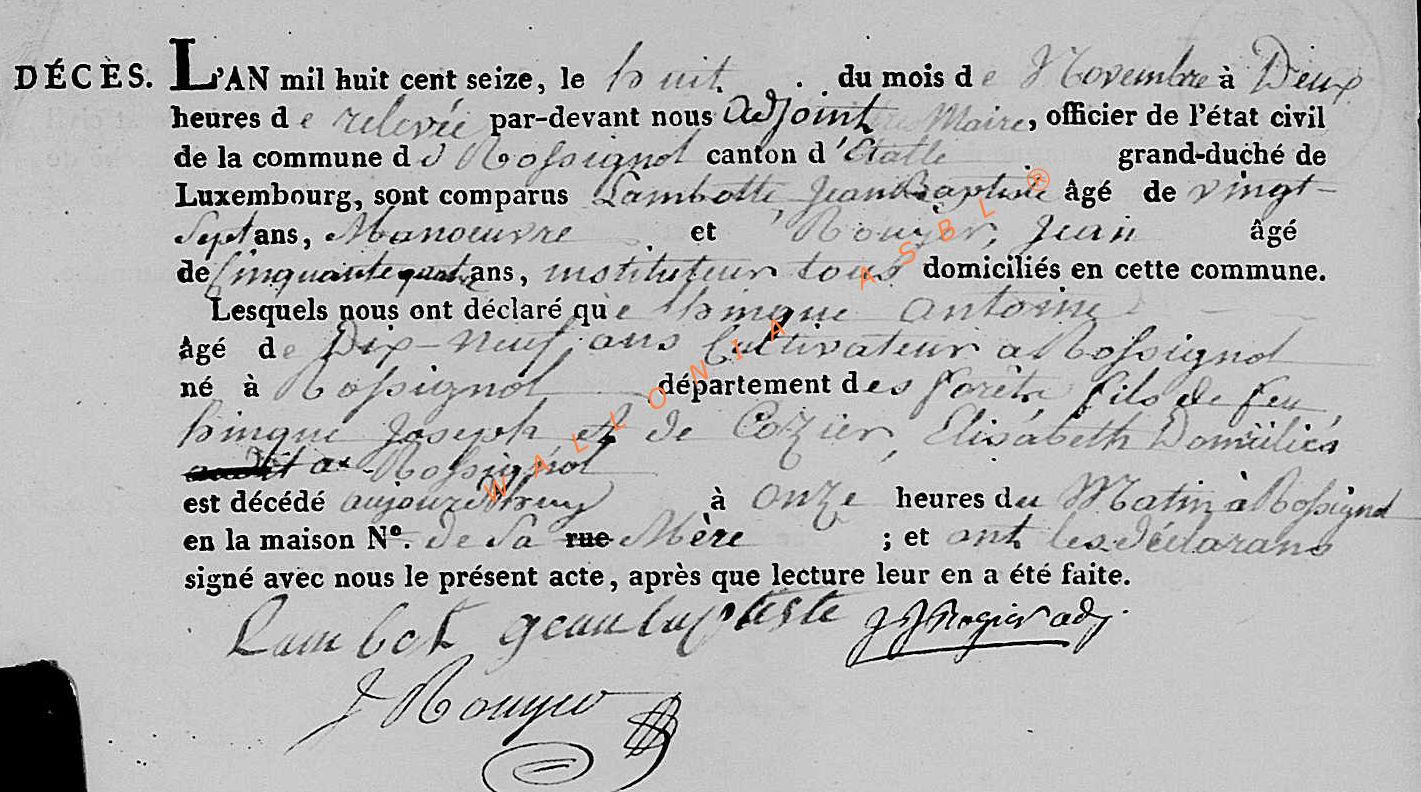 DÉCÈS. L'AN mil huit cent seize, le huit du mois de Novembre à Deux
heures de relevée par-devant nous Adjoint du Maire, officier de l'état civil
de la commune d Rossignol canton d'Étalle grand-duché de
Luxembourg, sont comparus Lambotte, Jean Baptiste âgé de vingt-
Sept ans, Manoeuvre et Rouyer, Jean âgé
de Cinquante quatre ans, instituteur tous domiciliés en cette commune.
Lesquels nous ont déclaré que hinque antoine
âgé de Dix-neuf ans Cultivateur a Rossignol
né à Rossignol département des forêts, fils de feu
hinque Joseph et de Cozier, Elisabeth Domiiliés
a Rossignol
est décédé aujourdhuy à onze heures du Matin à Rossignol
en la maison N°. de Sa rue Mère ; et ont les déclarans
signé avec nous le présent acte, après que lecture leur en a été faite.
Lambot geanbaptiste J J Rogier adj.
J Rouyer
WALLONIA ASBL ®